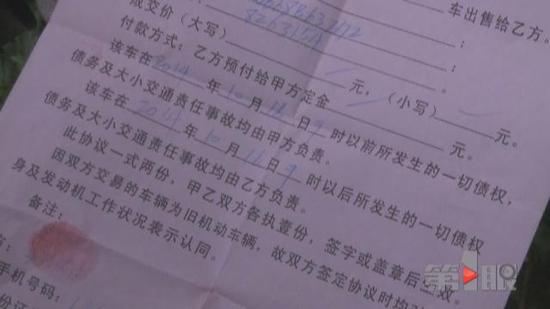 车出售给乙方。
成交价(大写)
付款方式:乙方预付给甲方定金 元,(小写) 元。
该车在2014年10月 日9时以前所发生的一切债权,
债务及大小交通责任事故均由甲方负责。
该车在2014年10月 日9时以后所发生的一切债权
债务及大小交通责任事故均由乙方负责。
此协议一式两份,甲乙双方各执壹份,签字或盖章后生效。
因双方交易的车辆为旧机动车辆,故双方签定协议时均
身及发动机工作状况表示认同。
备注:
方:
手机号码:
份证
第1眼